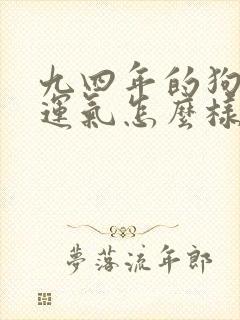 九四年的狗
運氣怎麼樣
夢落流年郎